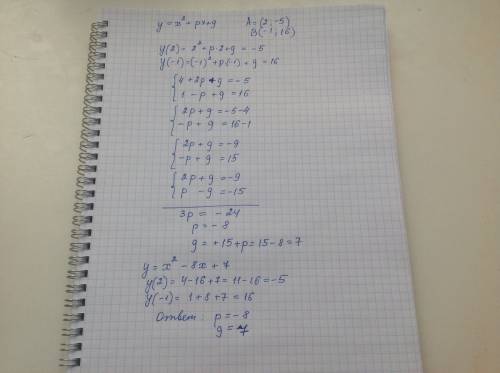 y = x² + px + g A = (2; -5)
B(-1; 16)
y(2) = 2² + p·2 + g = -5
y(-1) = (-1)² + p·(-1) + g = 16
{ 4 + 2p + g = -5
1 - p + g = 16
{ 2p + g = -5-4
-p + g = 16-1
{ 2p + g = -9
-p + g = 15
{ 2p + g = -9
p - g = -15
3p = -24
p = -8
g = +15 + p = 15-8 = 7
y = x² - 8x + 7
y(2) = 4-16+7 = 11-16 = -5
y(-1) = 1+8+7 = 16
Ответ: p = -8
g = 7